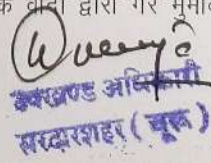 के वादी द्वारा गैर मुमकि
उपखण्ड अधिकारी
सरदारशहर (चूरू)